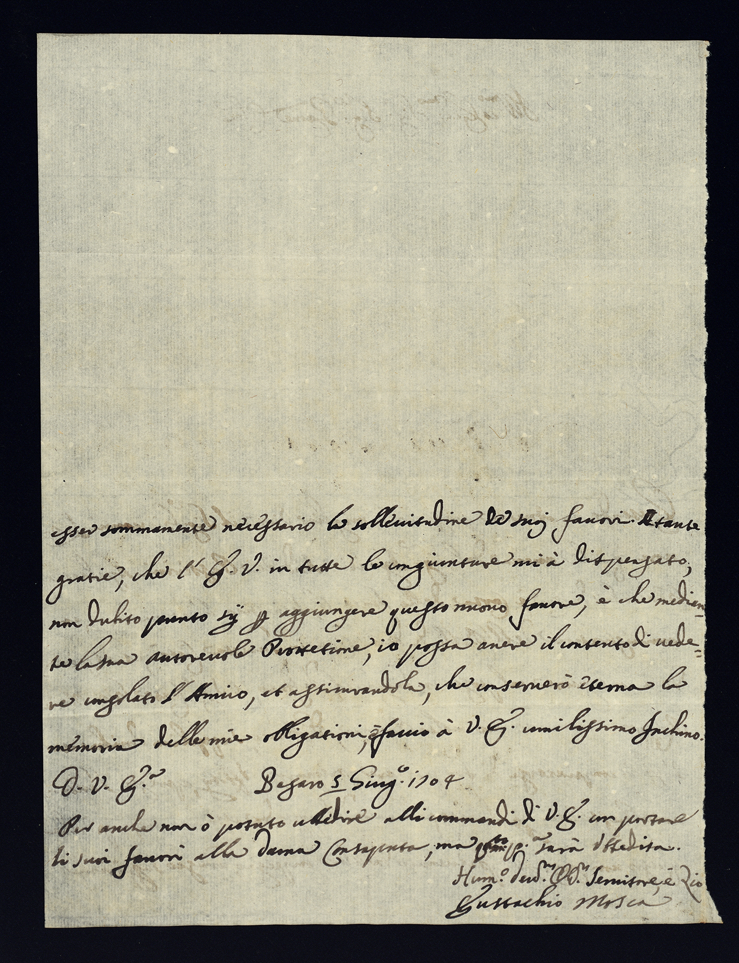 esser sommamente necessario la sollecitudine de suoj favori. A tante
gratie, che l' E. V. in tutte le congiunture mi à dispensato,
non dubito punto sij p aggiungere questo nuovo favore, è che median=
te la sua autorevole Prottetione, io possa avere il contento di vede=
re consolato l'Amico, et assicurandola, che conserverò eterna la
memoria delle mie obligationi, faccio à V. E. umilissimo Inchino.
D. V. E.ᵃ Pesaro 5 Giug.º 1704
Per anche non ò potuto ubedire alli commandi di V. E. con portare
li suoi favori alla Dama Consaputa, ma sarà Ubedita.
Hum.º dev.ᵐᵒ Obb.ᵐᵒ Servitore, è Zio
Eustachio Mosca